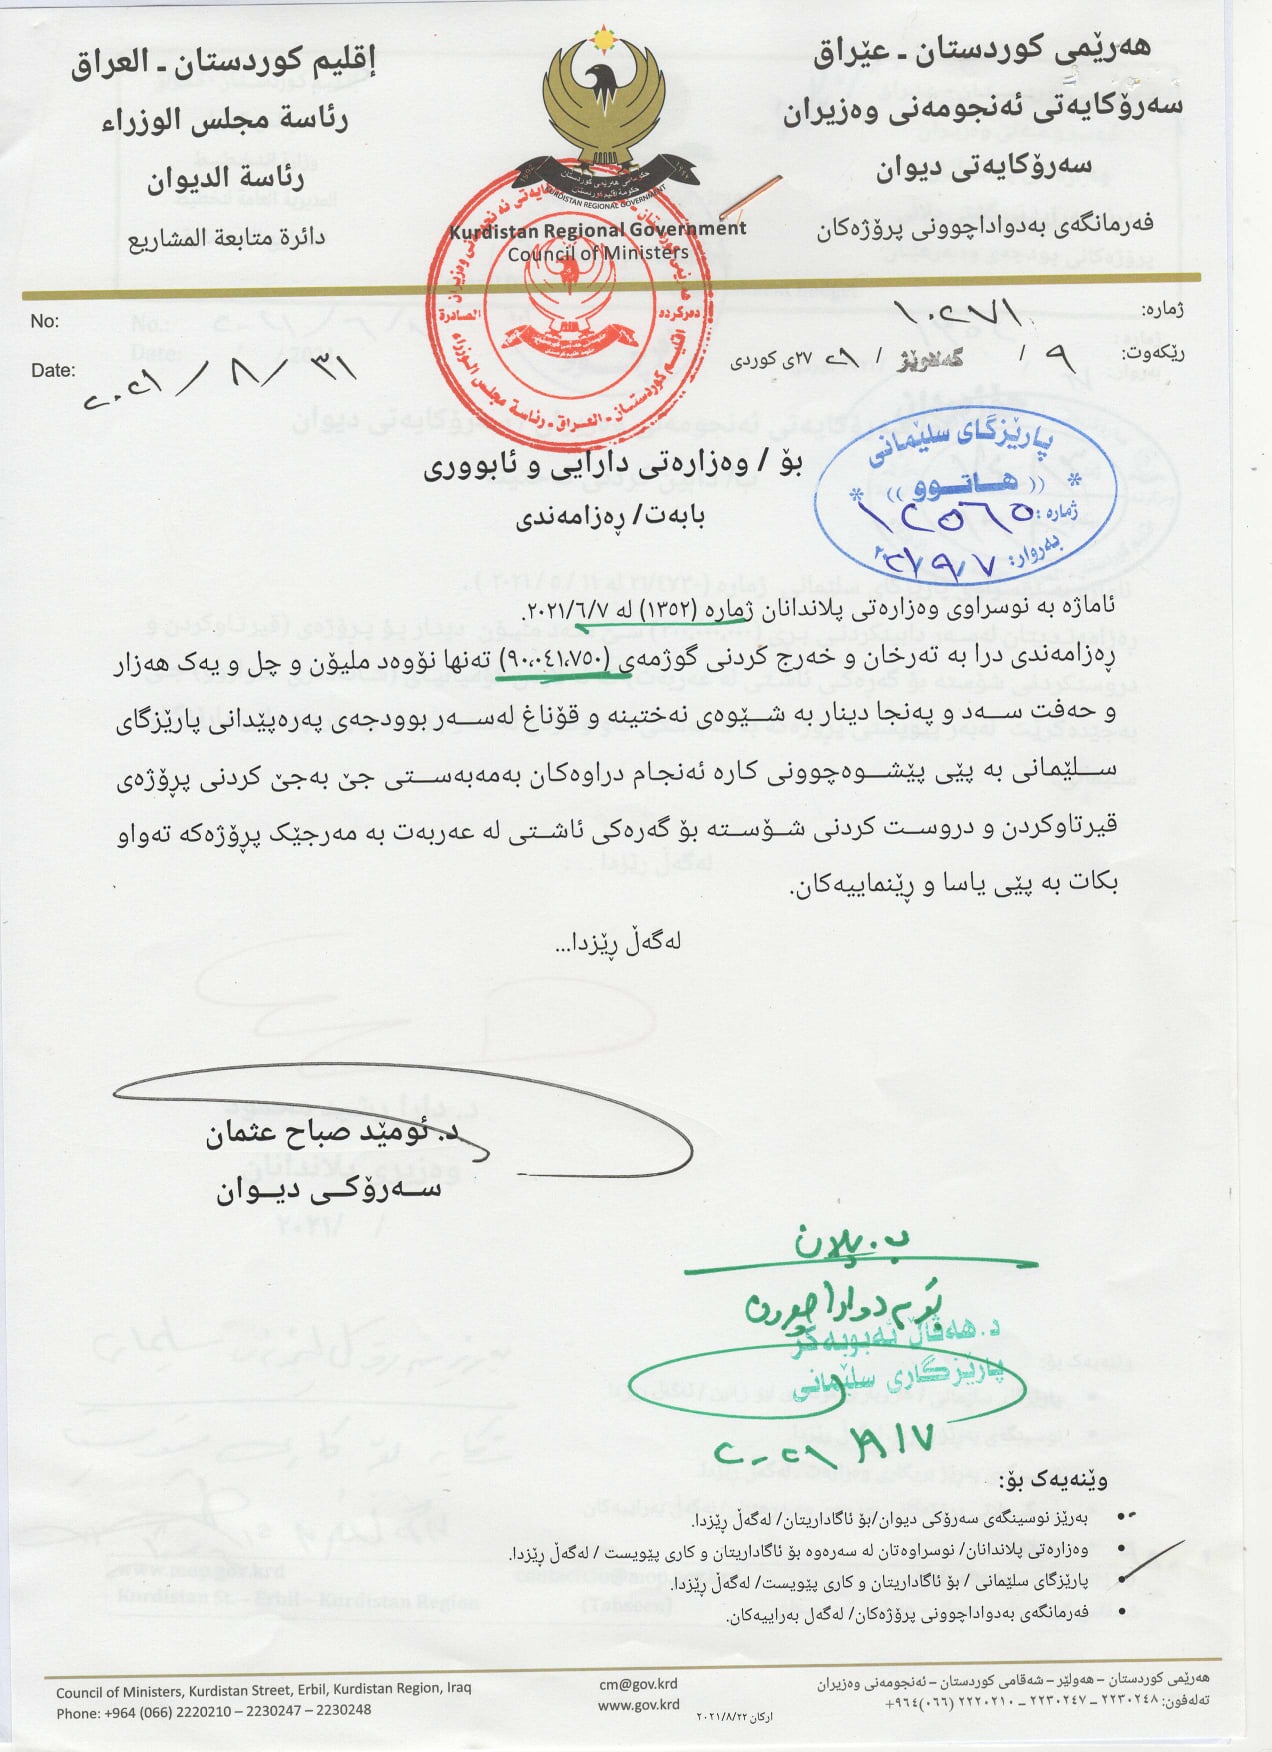 هەرێمی کوردستان ـ عێراق
سەرۆکایەتی ئەنجومەنی وەزیران
سەرۆکایەتی دیوان
فەرمانگەی بەدواداچوونی پرۆژەکان
إقليم كوردستان ـ العراق
رئاسة مجلس الوزراء
رئاسة الديوان
دائرة متابعة المشاريع
KURDISTAN REGIONAL GOVERNMENT
Kurdistan Regional Government
Council of Ministers
دەرکردە
الصادرة
إقليم كوردستان ـ العراق ـ رئاسة مجلس الوزراء
ژمارە: ١٠٢٧١
No:
ڕێکەوت: ٩ / گەلاوێژ / ٢٧٢١ی کوردی
Date: ٢٠٢١ / ٨ / ٣١
پارێزگای سلێمانی
(( هاتوو ))
ژمارە: ١٢٥٦٥
بەروار: ٢٠٢١/٩/٧
بۆ / وەزارەتی دارایی و ئابووری
بابەت/ ڕەزامەندی
ئاماژە بە نوسراوی وەزارەتی پلاندانان ژمارە (١٣٥٢) لە ٢٠٢١/٦/٧.
ڕەزامەندی درا بە تەرخان و خەرج کردنی گوژمەی (٩٠،٠٤١،٧٥٠) تەنها نۆوەد ملیۆن و چل و یەک هەزار
و حەفت سەد و پەنجا دینار بە شێوەی نەختینە و قۆناغ لەسەر بوودجەی پەرەپێدانی پارێزگای
سلێمانی بە پێی پێشوەچوونی کارە ئەنجام دراوەکان بەمەبەستی جێ بەجێ کردنی پڕۆژەی
قیرتاوکردن و دروست کردنی شۆستە بۆ گەرەکی ئاشتی لە عەربەت بە مەرجێک پڕۆژەکە تەواو
بکات بە پێی یاسا و ڕێنماییەکان.
لەگەڵ ڕێزدا...
د. ئومێد صباح عثمان
سەرۆکی دیوان
ب. پلان
بۆ بەدواداچوون
د. هەڤاڵ ئەبوبەکر
پارێزگاری سلێمانی
٢٠٢١/٩/٧
وێنەیەک بۆ:
• بەرێز نوسینگەی سەرۆکی دیوان/بۆ ئاگاداریتان/ لەگەڵ ڕێزدا.
• وەزارەتی پلاندانان/ نوسراوەتان لە سەرەوە بۆ ئاگاداریتان و کاری پێویست / لەگەڵ ڕێزدا.
• پارێزگای سلێمانی / بۆ ئاگاداریتان و کاری پێویست/ لەگەڵ ڕێزدا.
• فەرمانگەی بەدواداچوونی پرۆژەکان/ لەگەل بەراییەکان.
هەرێمی کوردستان – هەولێر – شەقامی کوردستان – ئەنجومەنی وەزیران
تەلەفون: ٢٢٣٠٢٤٨ – ٢٢٣٠٢٤٧ – ٢٢٢٠٢١٠ (٠٦٦) ٩٦٤+
cm@gov.krd
www.gov.krd
ارکان ٢٠٢١/٨/٢٢
Council of Ministers, Kurdistan Street, Erbil, Kurdistan Region, Iraq
Phone: +964 (066) 2220210 – 2230247 – 2230248